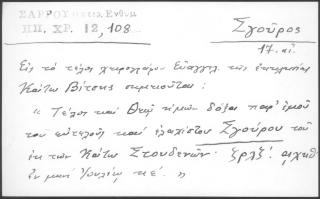 ΣΑΡΡΟΥ Ενθυμ.
ΗΠ. ΧΡ. 12, 108
Σγοῦρος
17. αἰ.
Εἰς τό τέλος χειρογράφου Εὐαγγελ. τῆς ἐκκλησίας
Κάτω Βίτσης σημειοῦται:
"Τέλος καί Θεῷ ἡμῶν δόξα παρ' ἐμοῦ
τοῦ εὐτελοῦς καί ἐλαχίστου Σγούρου τοῦ
ἐκ τῶν Κάτω Στουδενῶν. ζρλξ!
ἐν μηνί Ἰουλίῳ κέ. "